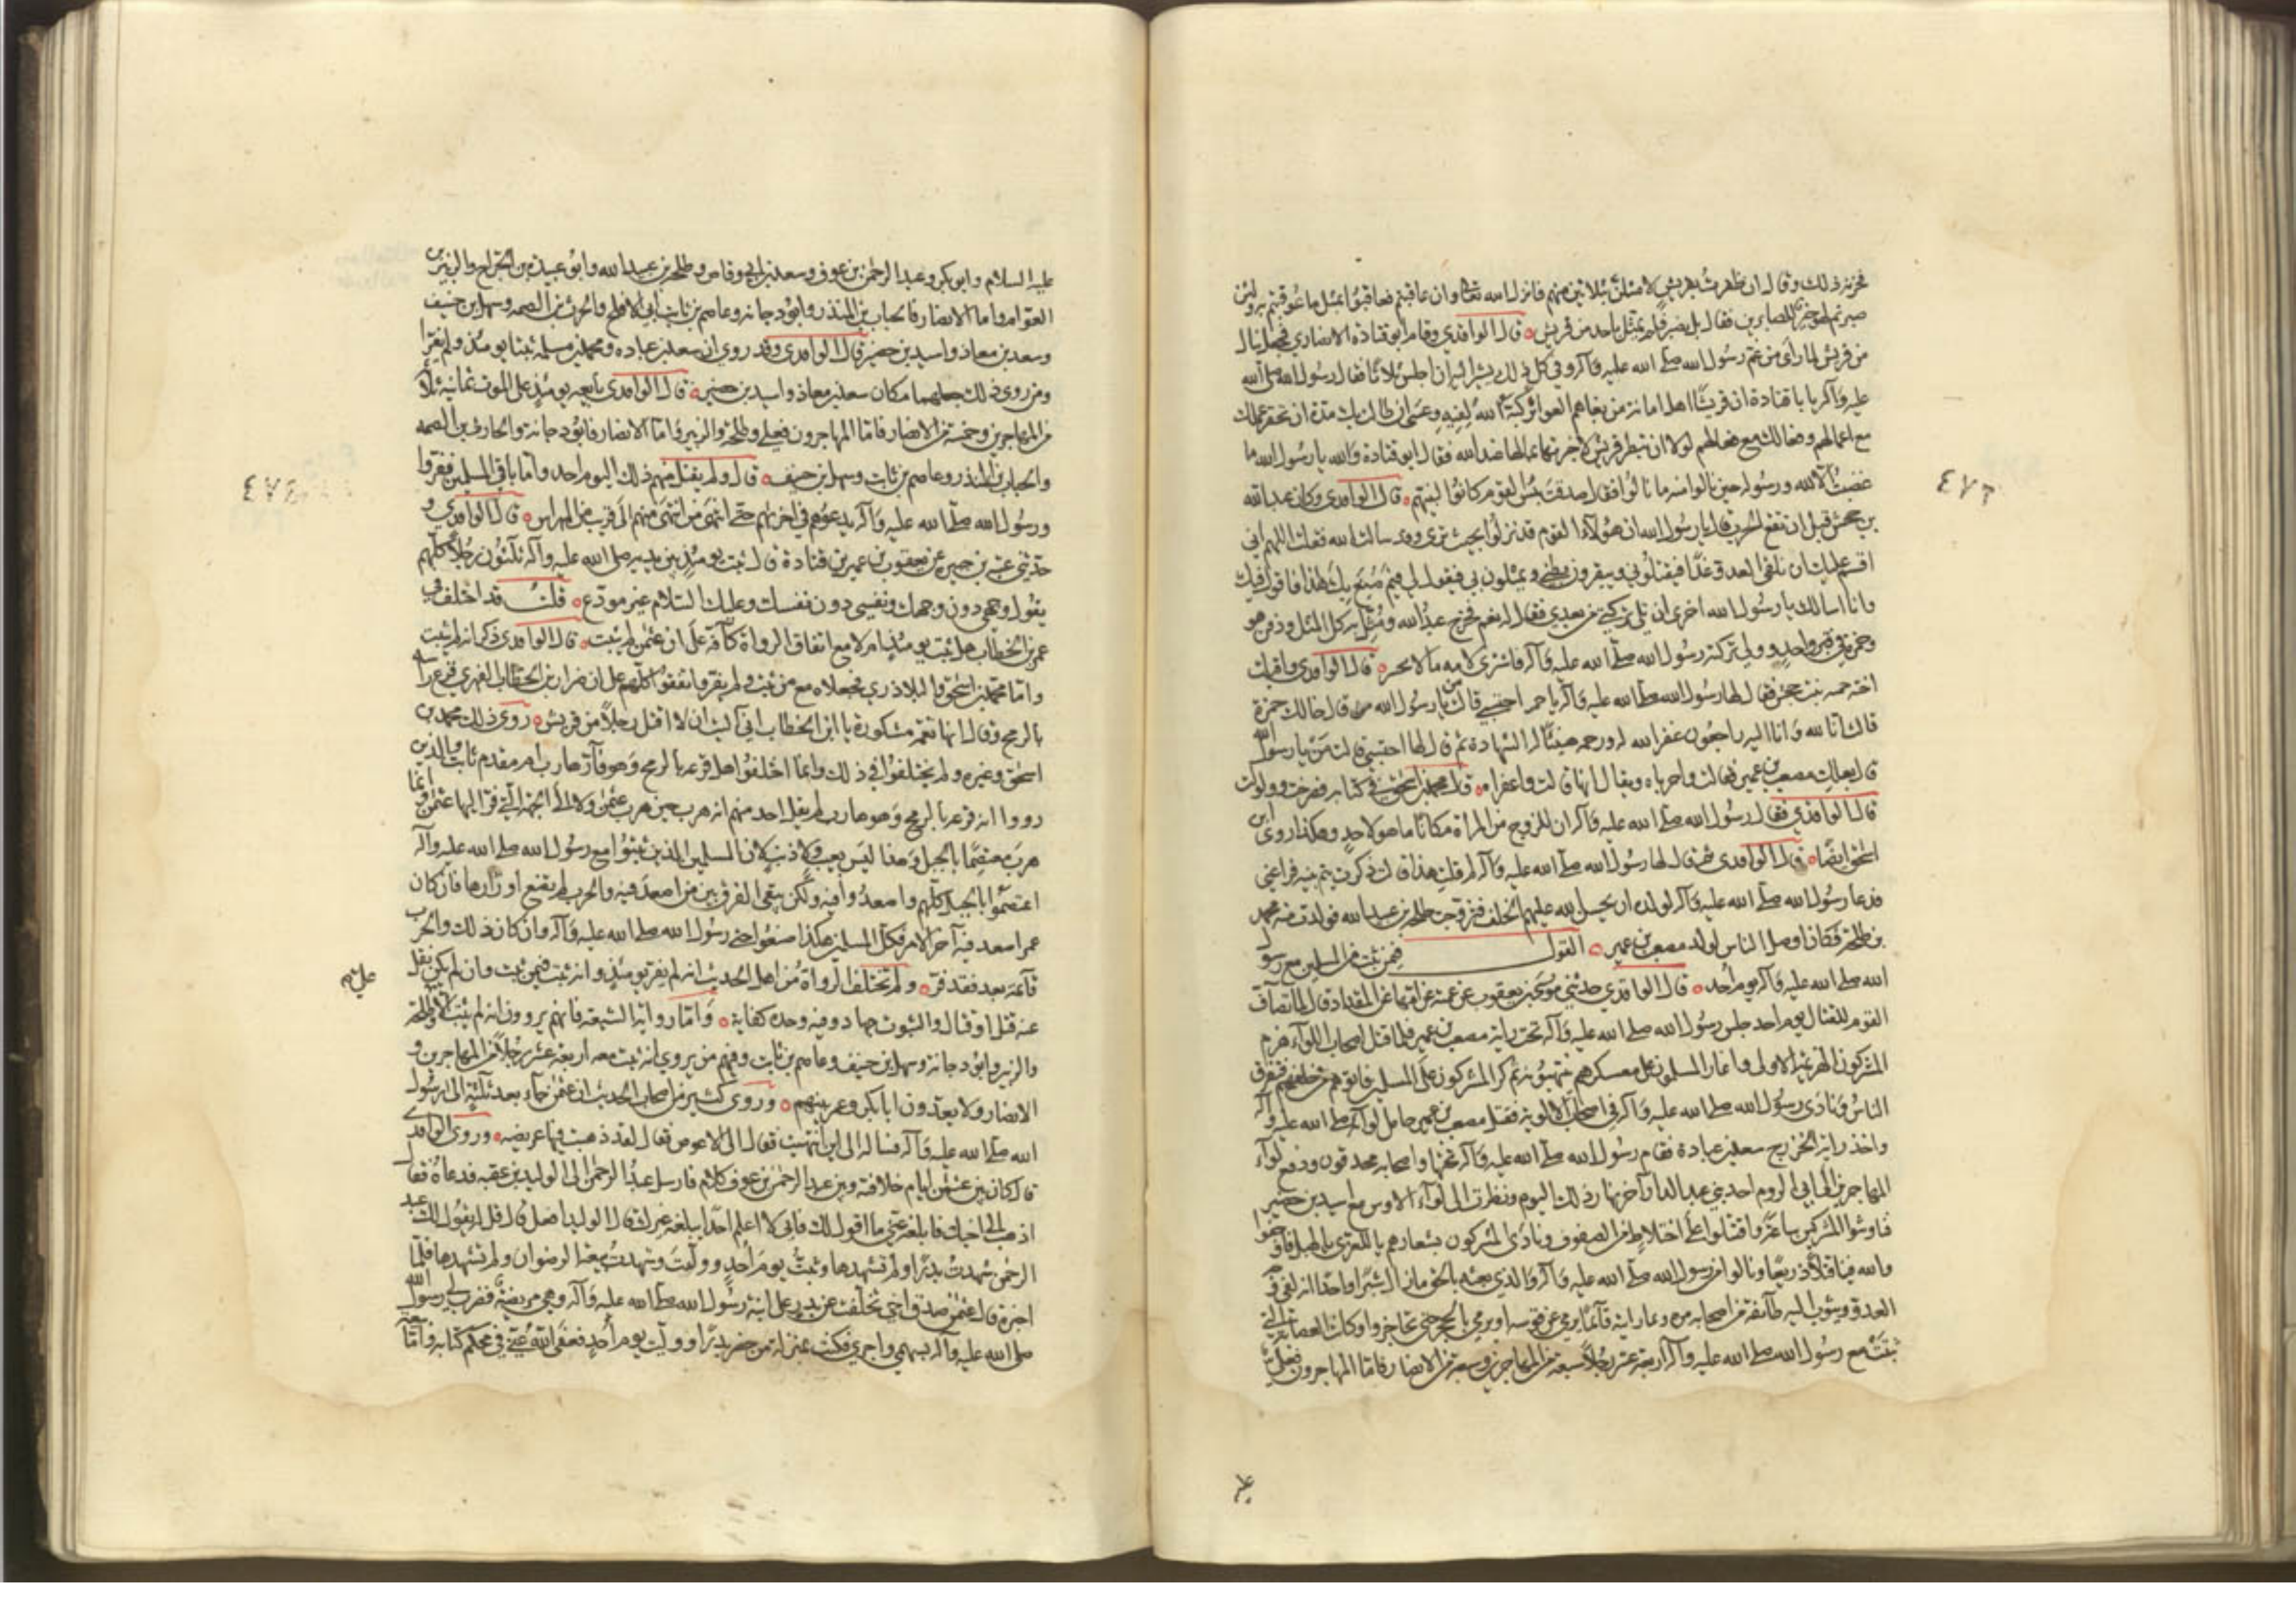 فحزنه ذلك وقال ان ظفرت بقريش لامثلن بثلاثين منهم فانزل الله تعالى وان عاقبتم فعاقبوا بمثل ما عوقبتم به ولئن
صبرتم لهو خير للصابرين فقال بل نصبر فلم يمثل باحد من قريش قال الواقدي وقام ابو قتادة الانصاري فجعل ينال
من قريش لما رأى من غم رسول الله صلى الله عليه وآله وفي كل ذلك يشير اليه ان اجلس ثلاثا فقال رسول الله صلى الله
عليه وآله يا با قتادة ان قريشا اهل امانة من بغاهم العواثر كبه الله لفيه وعسى ان طالت بك مدة ان تحقر عملك
مع اعمالهم وفعالك مع فعالهم لولا ان تبطر قريش لاخبرتها بما لها عند الله فقال ابو قتادة والله يا رسول الله ما
غضبت الا لله ورسوله حين نالوا منه ما نالوا فقال صدقت بئس القوم كانوا لنبيهم قال الواقدي وكان عبد الله
بن جحش قبل ان تقع الحرب قال يا رسول الله ان هؤلاء القوم قد نزلوا بحيث ترى وقد سالت الله فقلت اللهم اني
اقسم عليك ان نلقى العدو غدا فيقتلوني ويبقرون بطني ويمثلون بي فيقول لي فيم صنع بك هذا فاقول فيك
وانا اسالك يا رسول الله اخرى ان تلي تركتي من بعدي فقال له نعم فخرج عبد الله ومثل به كل المثل ودفن هو
وحمزة في قبر واحد وولي تركته رسول الله صلى الله عليه وآله فاشترى لامه مالا بخيبر قال الواقدي واقبلت
اخته حمنه بنت جحش فقال لها رسول الله صلى الله عليه وآله يا حمن احتسبي قالت من يا رسول الله قال خالك حمزة
قالت انا لله وانا اليه راجعون غفر الله له ورحمه هنيئا له الشهادة ثم قال لها احتسبي قالت من يا رسول الله
قال بعلك مصعب بن عمير فقالت واحزناه ويقال انها قالت واعقراه قلت محمد بن اسحق في كتابه فصرخت وولولت
قال الواقدي فقال رسول الله صلى الله عليه وآله ان للزوج من المراة مكانا ما هو لاحد وهكذا روى ابن
اسحق ايضا قال الواقدي ثم قال لها رسول الله صلى الله عليه وآله لم قلت هذا قالت ذكرت يتم بنيه فراعني
فدعا رسول الله صلى الله عليه وآله لولده ان يحسن الله عليهم الخلف فتزوجت طلحة بن عبيد الله فولدت منه محمد
بن طلحة فكان اوصل الناس لولد مصعب بن عمير القول فيمن ثبت من المسلمين مع رسول
الله صلى الله عليه وآله يوم احد قال الواقدي حدثني موسى بن يعقوب عن عمته عن امها عن المقداد قال لما تصاف
القوم للقتال يوم احد جلس رسول الله صلى الله عليه وآله تحت راية مصعب بن عمير فلما قتل اصحاب اللواء هزم
المشركون الهزيمة الاولى واغار المسلمون على معسكرهم ينهبونه ثم كر المشركون على المسلمين فاتوهم من خلفهم فتفرق
الناس ونادى رسول الله صلى الله عليه وآله في اصحاب الالوية فقتل مصعب بن عمير حامل لوائه صلى الله عليه وآله
واخذ راية الخزرج سعد بن عبادة فقام رسول الله صلى الله عليه وآله تحتها واصحابه محدقون ودفع لواء
المهاجرين الى ابي الروم احد بني عبد الدار آخر نهار ذلك اليوم ونظرت الى لواء الاوس مع اسيد بن حضير
فناوشوا المشركين ساعة واقتتلوا على اختلاط من الصفوف ونادى المشركون بشعارهم يا للعزى يا لهبل فاوجعوا
والله فينا قتلا ذريعا ونالوا من رسول الله صلى الله عليه وآله والذي بعثه بالحق ما زال شبرا واحدا انه لفي
العدو ويثوب اليه طائفة من اصحابه مرة رايته قائما يرمي عن قوسه او يرمي بالحجر حتى تحاجزوا وكانت العصابة التي
ثبتت مع رسول الله صلى الله عليه وآله اربعة عشر رجلا سبعة من المهاجرين وسبعة من الانصار فاما المهاجرون فعلي
علي
٤٧٢
عليه السلام وابو بكر وعبد الرحمن بن عوف وسعد بن ابي وقاص وطلحة بن عبيد الله وابو عبيدة بن الجراح والزبير بن
العوام واما الانصار فالحباب بن المنذر وابو دجانة وعاصم بن ثابت ابي الافلح والحرث بن الصمه وسهل بن حنيف
وسعد بن معاذ واسيد بن حضير قال الواقدي وقد روي ان سعد بن عبادة ومحمد بن مسلمة ثبتا يومئذ ولم يفرا
ومن روى ذلك جعلهما مكان سعد بن معاذ واسيد بن حضير قال الواقدي بايعه يومئذ على الموت ثمانية ثلاثة
من المهاجرين وخمسة من الانصار فاما المهاجرون فعلي وطلحة والزبير واما الانصار فابو دجانة والحارث بن الصمه
والحباب بن المنذر وعاصم بن ثابت وسهل بن حنيف قال ولم يقتل منهم ذلك اليوم احد واما باقي المسلمين ففروا
ورسول الله صلى الله عليه وآله يدعوهم في اخراهم حتى انتهى من انتهى منهم الى قريب من المهراس قال الواقدي و
حدثني عتبة بن جبيرة عن يعقوب بن عمير بن قتادة قال ثبت يومئذ بين يديه صلى الله عليه وآله ثلثون رجلا كلهم
يقول وجهي دون وجهك ونفسي دون نفسك وعليك السلام غير مودع قلت قد اختلف في
عمر بن الخطاب هل ثبت يومئذ ام لا مع اتفاق الرواة كافة على ان عثمن لم يثبت قال الواقدي ذكر انه لم يثبت
واما محمد بن اسحق والبلاذري فجعلاه مع من ثبت ولم يفر واتفقوا كلهم على ان ضرار بن الخطاب الفهري قرع راسه
بالرمح وقال انها نعمة مشكورة يا ابن الخطاب اني آليت ان لا اقتل رجلا من قريش روى ذلك محمد بن
اسحق وغيره ولم يختلفوا في ذلك وانما اختلفوا هل قرعه بالرمح وهو فار هارب ام مقدم ثابت والذين
رووا انه قرعه بالرمح وهو هارب لم يقل احد منهم انه هرب حين هرب عثمن ولا الى الجهة التي فر اليها عثمن وانما
هرب معتصما بالجبل وهذا ليس بعيب ولا ذنب لان المسلمين الذين ثبتوا مع رسول الله صلى الله عليه وآله
اعتصموا بالجبل كلهم واصعدوا فيه ولكن يبقى الفرق بين من اصعد فيه والحرب لم تضع اوزارها فان كان
عمر اصعد فيه آخر الامر فكل المسلمين هكذا صنعوا حتى رسول الله صلى الله عليه وآله وان كان ذلك والحرب
قائمة بعد فقد فر ولم تختلف الرواة من اهل الحديث انه لم يفر يومئذ وانه ثبت فيمن ثبت وان لم يكن نقل
عنه قتل او قتال والثبوت جهاد وفيه وحده كفاية واما رواية الشيعة فانهم يروون انه لم يثبت الا وطلحة
والزبير وابو دجانة وسهل بن حنيف وعاصم بن ثابت ومنهم من يروي انه ثبت معه اربعة عشر رجلا من المهاجرين و
الانصار ولا يعدون ابا بكر وعمر بينهم وروى كثير من اصحاب الحديث ان عثمن جاء بعد ثلثة الى رسول
الله صلى الله عليه وآله فساله الى اين انتهيت فقال الى الاعوص فقال لقد ذهبت فيها عريضة وروى الواقدي
قال كان بين عثمن ايام خلافته وبين عبد الرحمن بن عوف كلام فارسل عبد الرحمن الى الوليد بن عقبه فدعاه فقال
اذهب الى اخيك فابلغه عني ما اقول لك فاني لا اعلم احدا يبلغه غيرك قال الوليد افعل قال قل له يقول لك عبد
الرحمن شهدت بدرا ولم تشهدها وثبت يوم احد ووليت وشهدت بيعة الرضوان ولم تشهدها فلما
اخبره قال عثمن صدق اخي تخلفت عن بدر على ابنة رسول الله صلى الله عليه وآله وهي مريضة فضرب لي رسول الله
صلى الله عليه وآله بسهمي واجري فكنت بمنزلة من حضر بدرا ووليت يوم احد فعفى الله عني في محكم كتابه فاما
٤٧٣